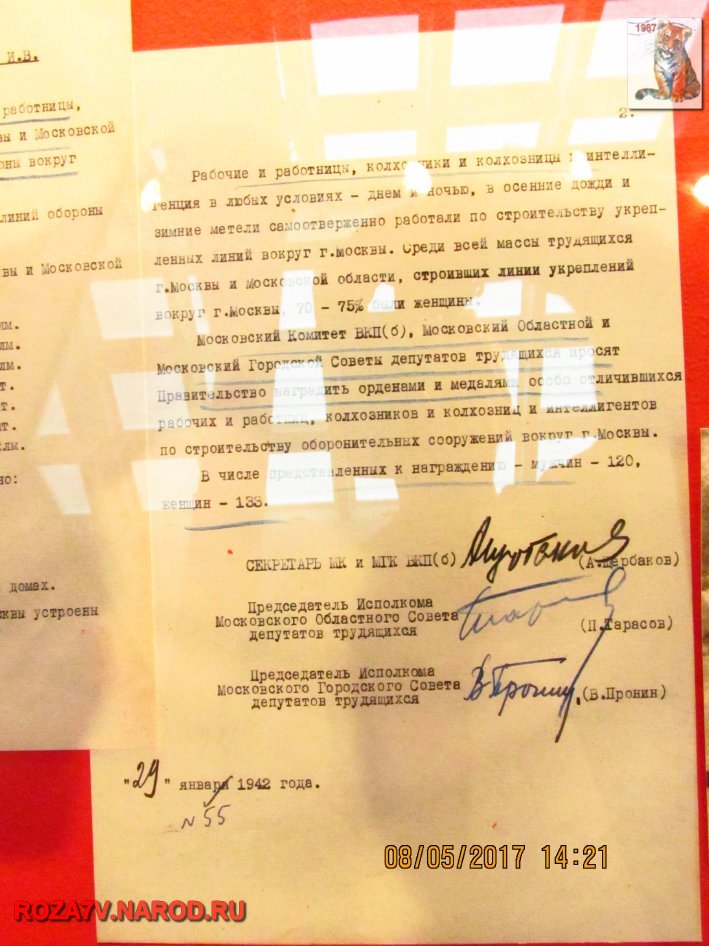 И.В.
работницы,
вы и Московской
оны вокруг
линий обороны
вы и Московской
лм.
лм.
лм.
т.
т.
т.
клм.
но:
домах.
квы устроены
1987
2.
Рабочие и работницы, колхозники и колхозницы и интелли-
генция в любых условиях - днем и ночью, в осенние дожди и
зимние метели самоотверженно работали по строительству укреп-
ленных линий вокруг г.Москвы. Среди всей массы трудящихся
г.Москвы и Московской области, строивших линии укреплений
вокруг г.Москвы, 70 - 75% были женщины.
Московский Комитет ВКП(б), Московский Областной и
Московский Городской Советы депутатов трудящихся просят
Правительство наградить орденами и медалями особо отличившихся
рабочих и работниц, колхозников и колхозниц и интеллигентов
по строительству оборонительных сооружений вокруг г.Москвы.
В числе представленных к награждению - мужчин - 120,
женщин - 133.
СЕКРЕТАРЬ МК и МГК ВКП(б) (А.Щербаков)
Председатель Исполкома
Московского Областного Совета
депутатов трудящихся (П.Тарасов)
Председатель Исполкома
Московского Городского Совета
депутатов трудящихся В.Пронин (В.Пронин)
"29" января 1942 года.
N 55
08/05/2017 14:21
ROZA7V.NAROD.RU